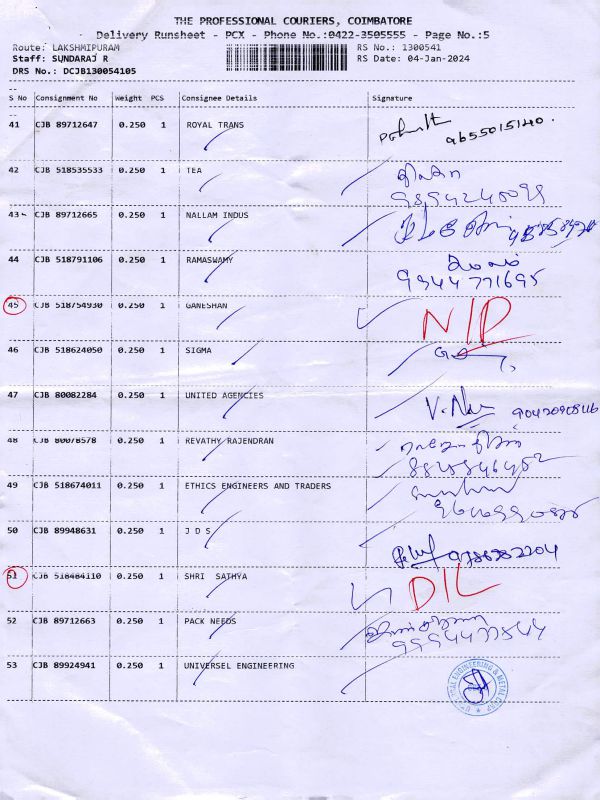 THE PROFESSIONAL COURIERS, COIMBATORE
Delivery Runsheet - PCX - Phone No.:0422-3505555 - Page No.:5
Route: LAKSHMIPURAM RS No.: 1300541
Staff: SUNDARAJ R RS Date: 04-Jan-2024
DRS No.: DCJB130054105
S No Consignment No Weight PCS Consignee Details Signature
41 CJB 89712647 0.250 1 ROYAL TRANS 9655015140.
42 CJB 518535533 0.250 1 TEA
43 CJB 89712665 0.250 1 NALLAM INDUS
44 CJB 518791106 0.250 1 RAMASWAMY
9944771695
45 CJB 518754930 0.250 1 GANESHAN N/P
46 CJB 518624050 0.250 1 SIGMA
47 CJB 80082284 0.250 1 UNITED AGENCIES
48 CJB 80078578 0.250 1 REVATHY RAJENDRAN
49 CJB 518674011 0.250 1 ETHICS ENGINEERS AND TRADERS
50 CJB 89948631 0.250 1 J D S
51 CJB 518484110 0.250 1 SHRI SATHYA D/L
52 CJB 89712663 0.250 1 PACK NEEDS
53 CJB 89924941 0.250 1 UNIVERSEL ENGINEERING